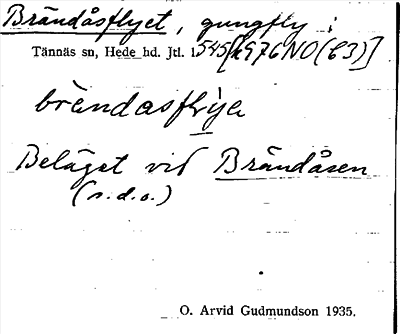 Brändåsflyet, gungfly i
Tännäs sn, Hede hd. Jtl. 1545[k976NO(63)]
brändasflýe
Beläget vid Brändåsen
(s.d.o.)
O. Arvid Gudmundson 1935.